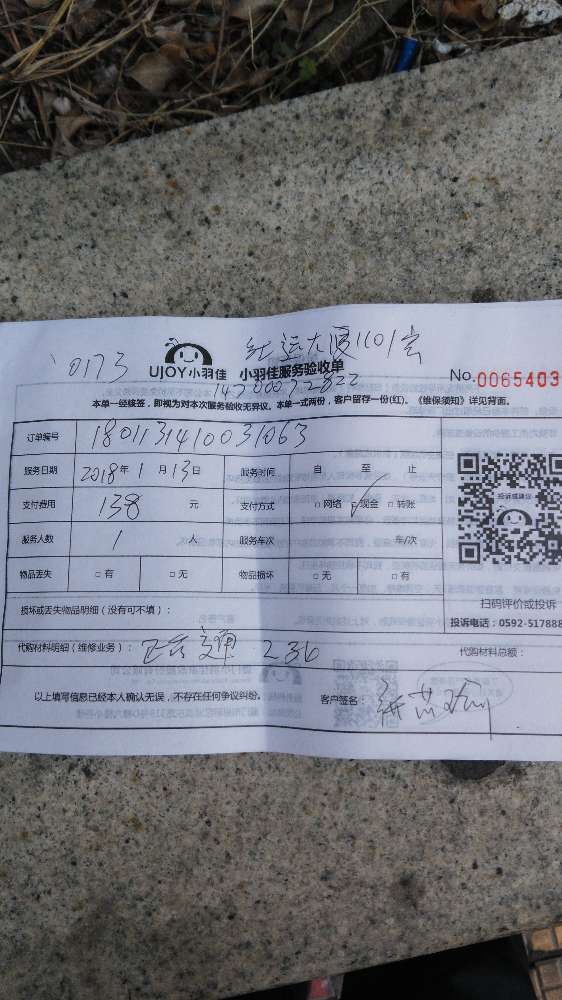 0173 红运大厦1101室
UJOY小羽佳 小羽佳服务验收单
No.0065403
本单一经核签，即视为对本次服务验收无异议。本单一式两份，客户留存一份(红)。《维保须知》详见背面。
订单编号 180113141003 1063
服务日期 2018年1月13日 服务时间 自 至 止
支付费用 138 元 支付方式 □网络 □现金 □转账
投诉或建议
服务人数 1 人 服务车次 车/次
物品丢失 □有 □无 物品损坏 □无 □有
扫码评价或投诉
损坏或丢失物品明细（没有可不填）：
投诉电话：0592-517888
代购材料明细（维修业务）： 236
代购材料总额：
以上填写信息已经本人确认无误，不存在任何争议纠纷。 客户签名：